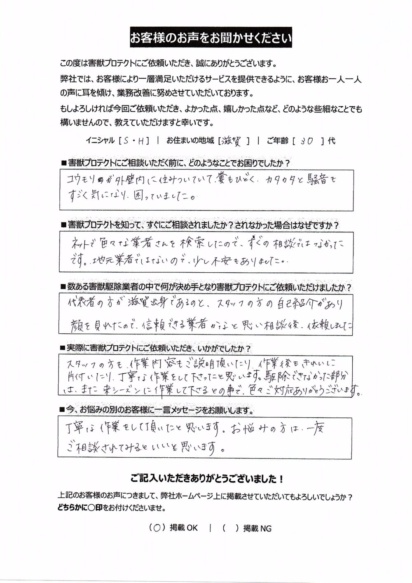 お客様のお声をお聞かせください
この度は害獣プロテクトにご依頼いただき、誠にありがとうございます。
弊社では、お客様により一層満足いただけるサービスを提供できるように、お客様お一人一人
の声に耳を傾け、業務改善に努めさせていただいております。
もしよろしければ今回ご依頼いただき、よかった点、嬉しかった点など、どのような些細なことでも
構いませんので、教えていただけますと幸いです。
イニシャル [ S・H ] | お住まいの地域 [ 滋賀 ] | ご年齢 [ 30 ] 代
■害獣プロテクトにご相談いただく前に、どのようなことでお困りでしたか？
コウモリが外壁内に住みついていて糞もひどく、カタカタと騒音も
すごく気になり、困っていました。
■害獣プロテクトを知って、すぐにご相談されましたか？されなかった場合はなぜですか？
ネットで色々な業者さんを検索したので、すぐの相談ではなかった
です。地元業者ではないので、少し不安もありました。
■数ある害獣駆除業者の中で何が決め手となり害獣プロテクトにご依頼いただけましたか？
代表者の方が滋賀出身であるのと、スタッフの方の自己紹介があり
顔を見れたので、信頼できる業者かなと思い相談後、依頼しました
■実際に害獣プロテクトにご依頼いただき、いかがでしたか？
スタッフの方も、作業内容をご説明頂いたり、作業後もきれいに
片付いたり、丁寧な作業をして下さったと思います。駆除できなかった部分
は、また来シーズンに作業して下さるとの事で、色々ご対応ありがとうございます。
■今、お悩みの別のお客様に一言メッセージをお願いします。
丁寧な作業をして頂いたと思います。お悩みの方は、一度
ご相談されてみるといいと思います。
ご記入いただきありがとうございました！
上記のお客様のお声につきまして、弊社ホームページ上に掲載させていただいてもよろしいでしょうか？
どちらかに○印をお付けくださいませ。
(○) 掲載OK | ( ) 掲載NG